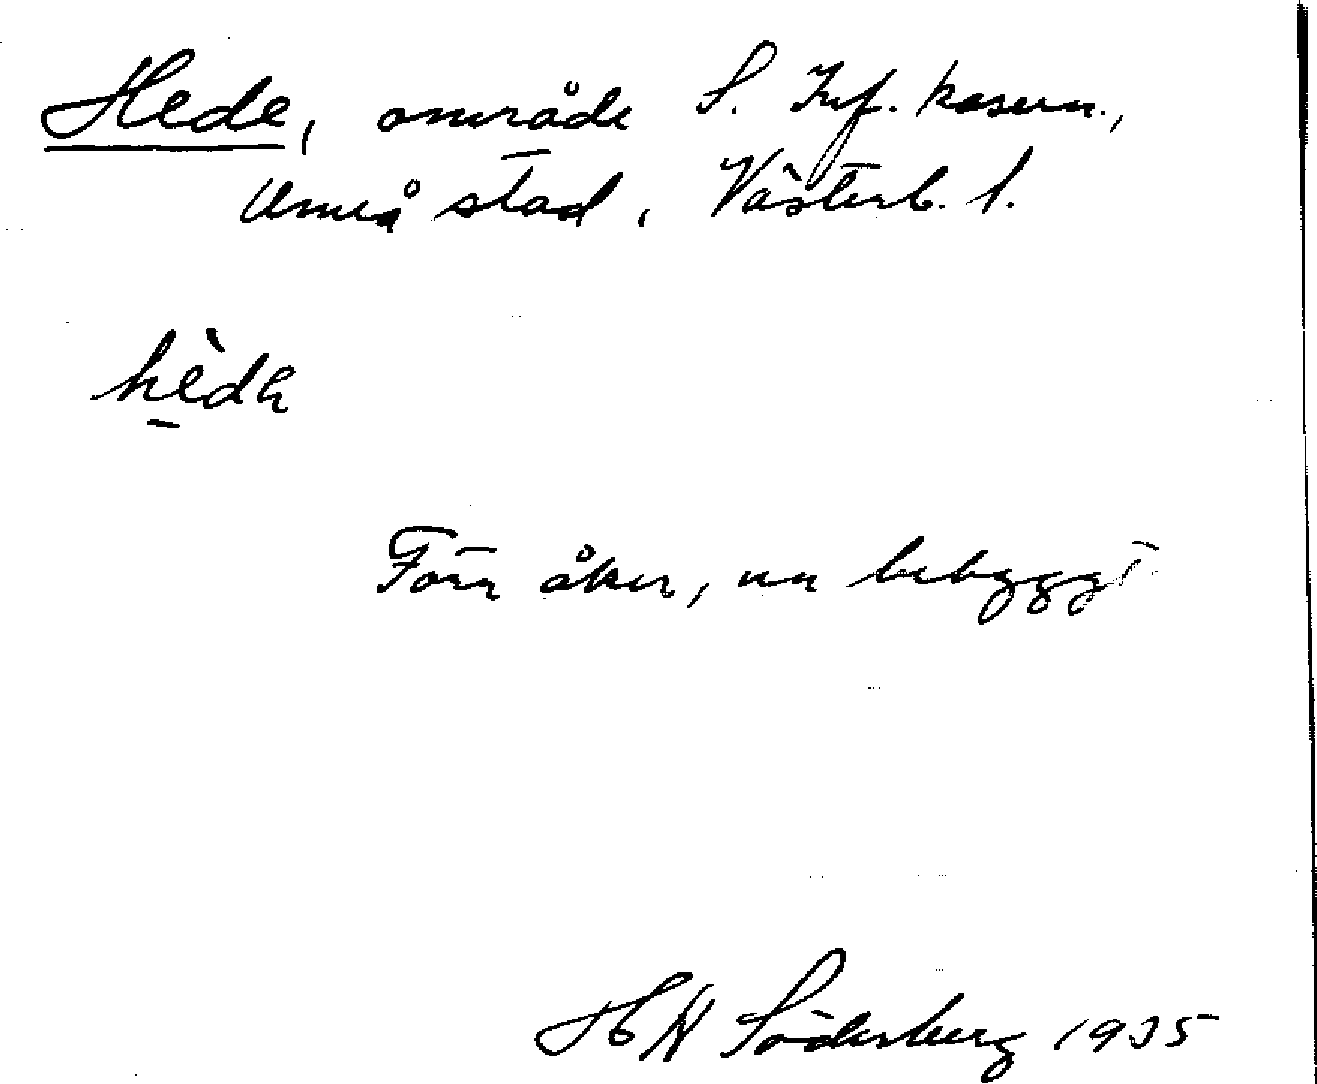 Hede, område S. Inf. kasern.,
Umeå stad, Västerb. l.
hèda
Förr åker, nu bebyggt
H N Söderberg 1935